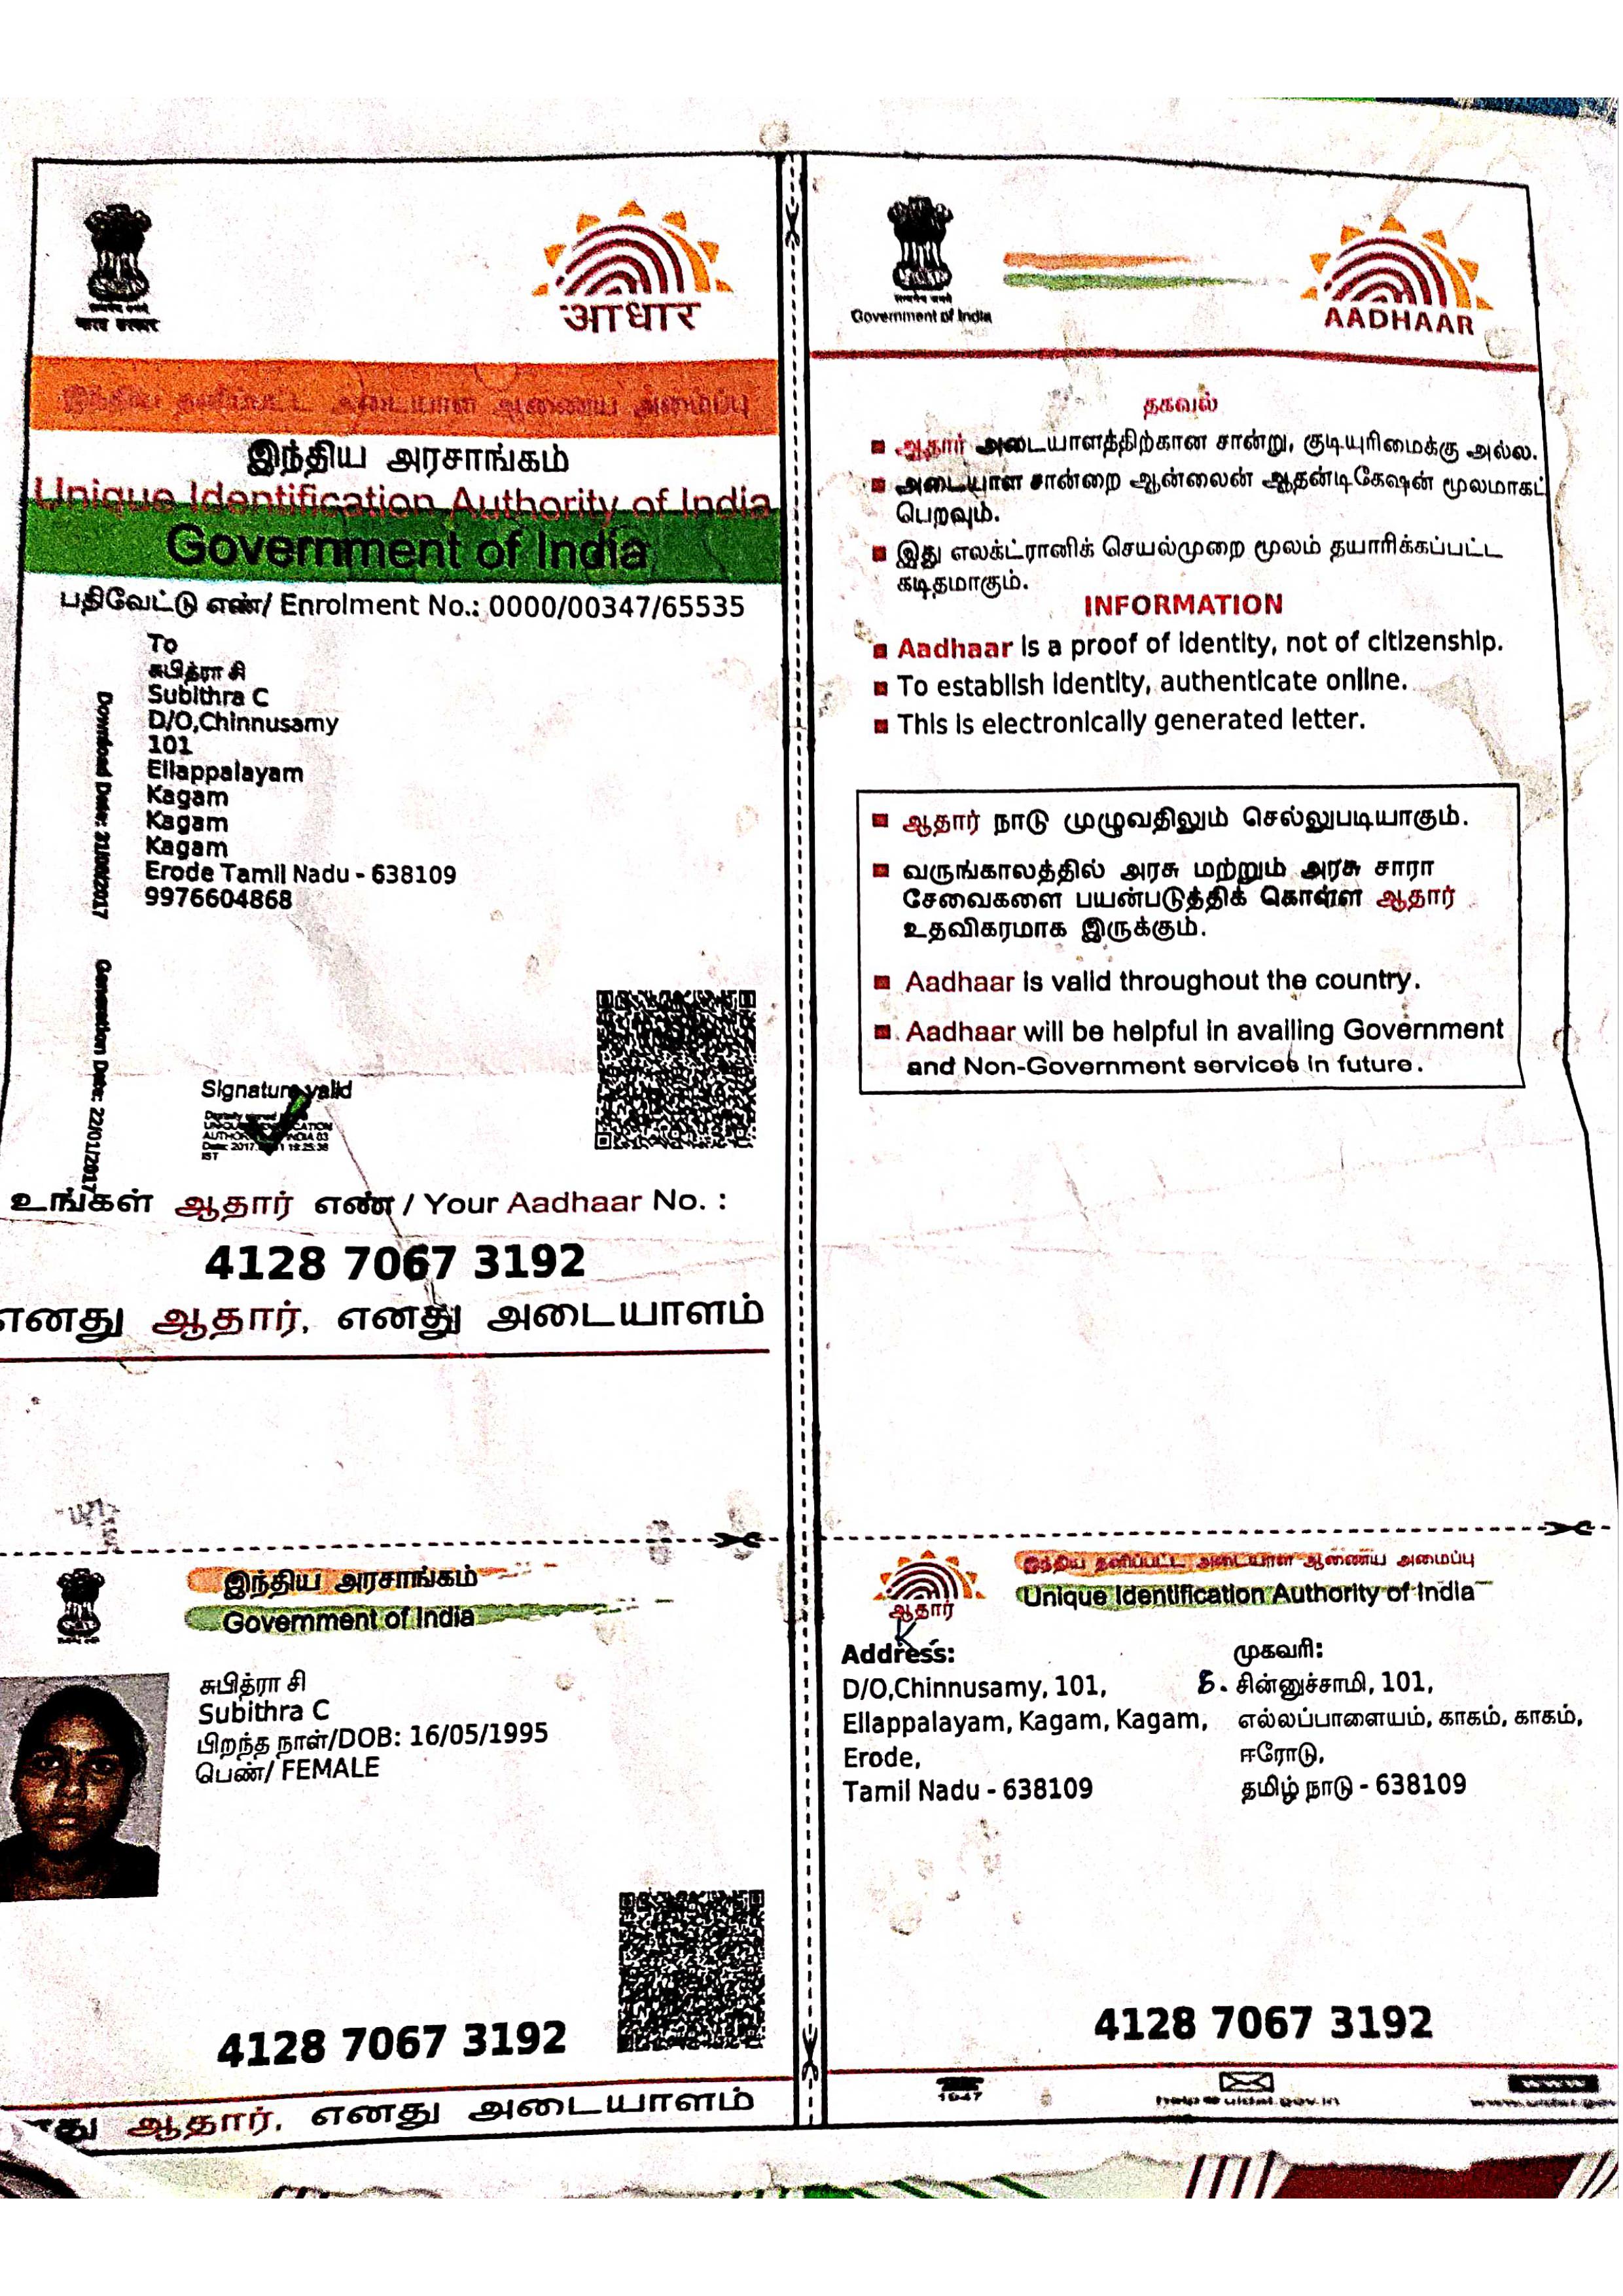 भारत सरकार
आधार
இந்திய தனிப்பட்ட அடையாள ஆணைய அமைப்பு
இந்திய அரசாங்கம்
Unique Identification Authority of India
Government of India
பதிவேட்டு எண்/ Enrolment No.: 0000/00347/65535
To
சுபித்ரா சி
Subithra C
D/O,Chinnusamy
101
Ellappalayam
Kagam
Kagam
Kagam
Erode Tamil Nadu - 638109
9976604868
Generation Date: 22/01/2017
Signature valid
உங்கள் ஆதார் எண் / Your Aadhaar No. :
4128 7067 3192
எனது ஆதார், எனது அடையாளம்
Government of India
AADHAAR
தகவல்
ஆதார் அடையாளத்திற்கான சான்று, குடியுரிமைக்கு அல்ல.
அடையாள சான்றை ஆன்லைன் ஆதன்டிகேஷன் மூலமாகப்
பெறவும்.
இது எலக்ட்ரானிக் செயல்முறை மூலம் தயாரிக்கப்பட்ட
கடிதமாகும்.
INFORMATION
Aadhaar is a proof of identity, not of citizenship.
To establish identity, authenticate online.
This is electronically generated letter.
ஆதார் நாடு முழுவதிலும் செல்லுபடியாகும்.
வருங்காலத்தில் அரசு மற்றும் அரசு சாரா
சேவைகளை பயன்படுத்திக் கொள்ள ஆதார்
உதவிகரமாக இருக்கும்.
Aadhaar is valid throughout the country.
Aadhaar will be helpful in availing Government
and Non-Government services in future.
இந்திய அரசாங்கம்
Government of India
சுபித்ரா சி
Subithra C
பிறந்த நாள்/DOB: 16/05/1995
பெண்/ FEMALE
4128 7067 3192
ஆதார், எனது அடையாளம்
இந்திய தனிப்பட்ட அடையாள ஆணைய அமைப்பு
Unique Identification Authority of India
ஆதார்
Address:
D/O,Chinnusamy, 101,
Ellappalayam, Kagam, Kagam,
Erode,
Tamil Nadu - 638109
முகவரி:
சின்னுச்சாமி, 101,
எல்லப்பாளையம், காகம், காகம்,
ஈரோடு,
தமிழ் நாடு - 638109
4128 7067 3192
1947
help@uidai.gov.in